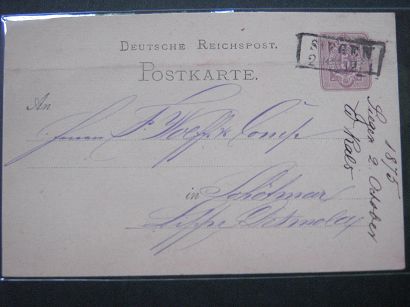 DEUTSCHE REICHSPOST.
POSTKARTE.
SIEGEN
2 10
An
Herren F. Wolff & Comp
in Schötmar
Lippe Detmold
1875
Siegen 2. October